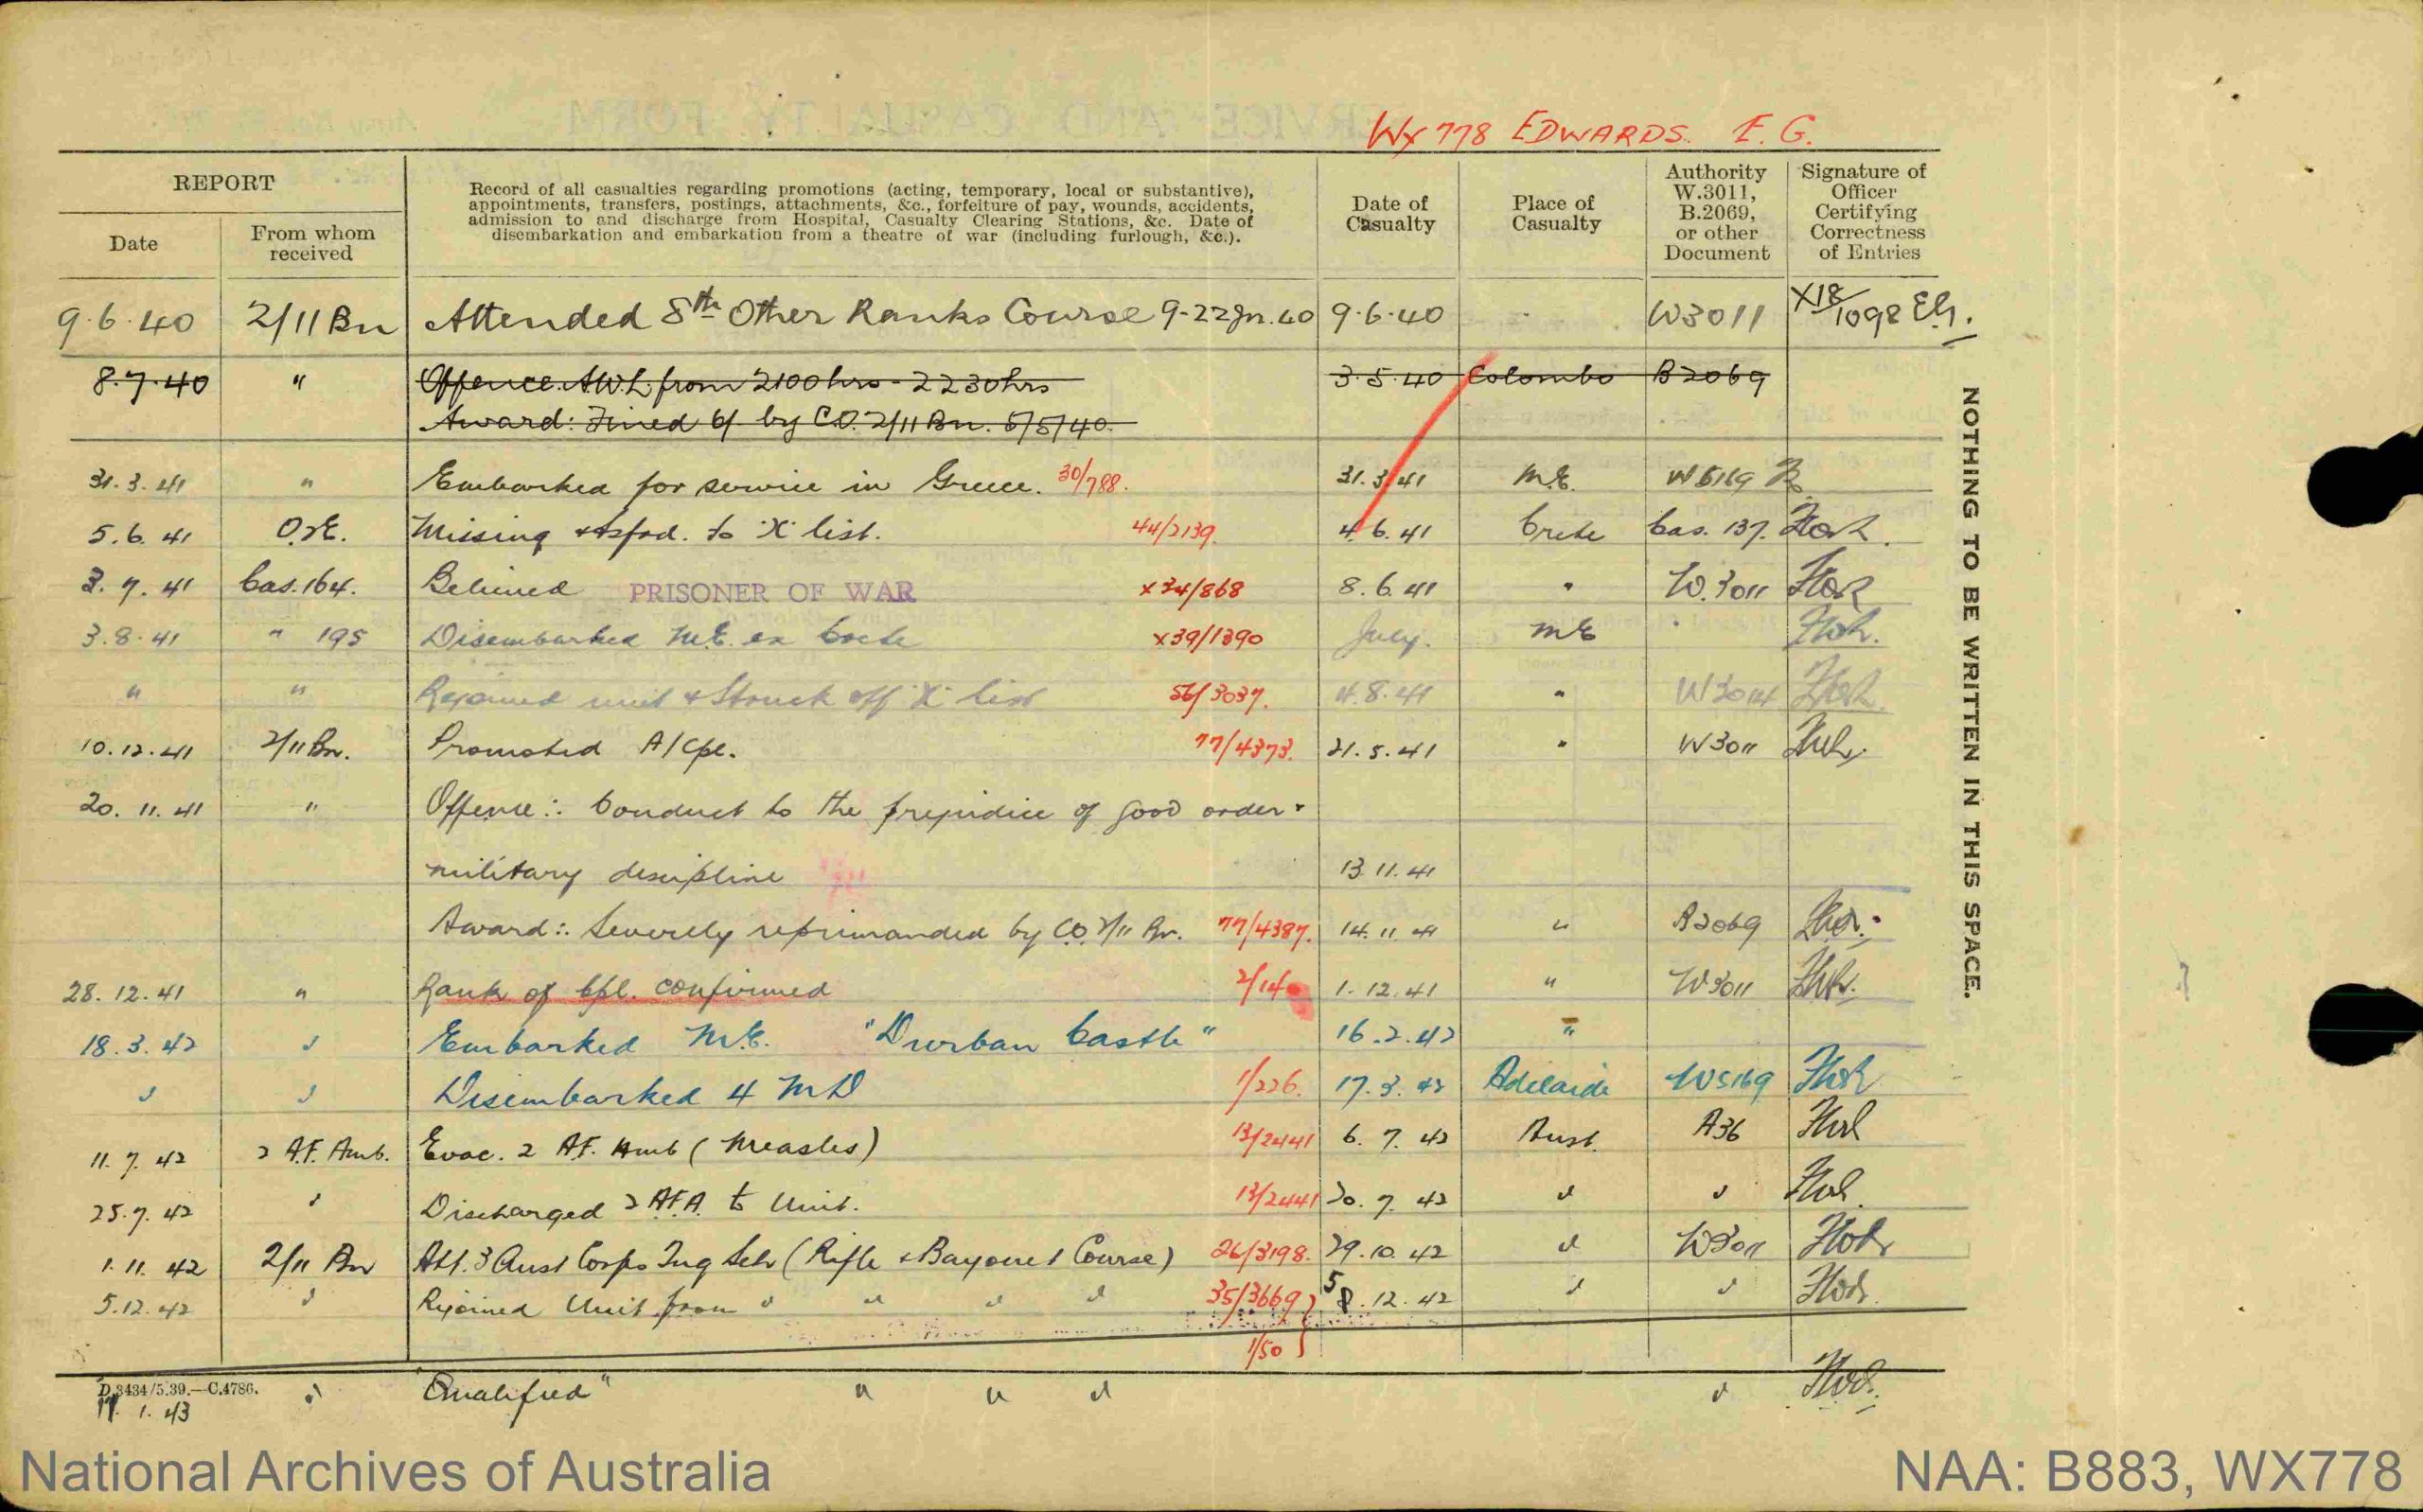 WX778 EDWARDS. E. G.
REPORT
Date
From whom received
Record of all casualties regarding promotions (acting, temporary, local or substantive),
appointments, transfers, postings, attachments, &c., forfeiture of pay, wounds, accidents,
admission to and discharge from Hospital, Casualty Clearing Stations, &c. Date of
disembarkation and embarkation from a theatre of war (including furlough, &c.).
Date of Casualty
Place of Casualty
Authority W.3011, B.2069, or other Document
Signature of Officer Certifying Correctness of Entries
9.6.40 2/11 Bn Attended 8th Other Ranks Course 9-22 Jn. 40 9.6.40 W3011 X18/1098
8.7.40 " Offence: A.W.L. from 2100 hrs - 2230 hrs 3.5.40 Colombo B2069
Award: Fined 6/ by C.O. 2/11 Bn. 5/5/40.
31.3.41 " Embarked for service in Greece. 30/788. 31.3.41 M.E. W5169
5.6.41 O2E. Missing & tsfd. to "X" list. 44/2139. 4.6.41 Crete Cas. 137.
3.7.41 Cas. 164. Believed PRISONER OF WAR x34/868 8.6.41 " W.3011
3.8.41 " 195 Disembarked M.E. ex Crete x39/1390 July. M.E "
" " Rejoined unit & Struck off "X" list 56/3037. 4.8.41 " W3014
10.12.41 2/11 Bn. Promoted A/Cpl. 77/4373. 21.5.41 " W3011
20.11.41 " Offence: Conduct to the prejudice of good order &
military discipline 13.11.41
Award: Severely reprimanded by C.O. 2/11 Bn. 77/4387. 14.11.41 " B2069
28.12.41 " Rank of Cpl. confirmed 2/14 1.12.41 " W3011
18.3.42 " Embarked M.E. "Durban Castle" 16.2.42 "
" " Disembarked 4 MD 1/226. 17.3.42 Adelaide W5169
11.7.42 2 A.F. Amb. Evac. 2 A.F. Amb (Measles) 13/2441 6.7.42 Aust. A36
25.7.42 " Discharged 2 A.F.A. to Unit. 13/2441 20.7.42 " "
1.11.42 2/11 Bn Att. 3 Aust Corps Tng Sch (Rifle & Bayonet Course) 26/3198. 29.10.42 " W3011
5.12.42 " Rejoined Unit from " " " " 35/3669 5.12.42 " "
1/50
D.3434/5.39.—C.4786.
17.1.43 " "Qualified" " " " "
NOTHING TO BE WRITTEN IN THIS SPACE.
National Archives of Australia
NAA: B883, WX778